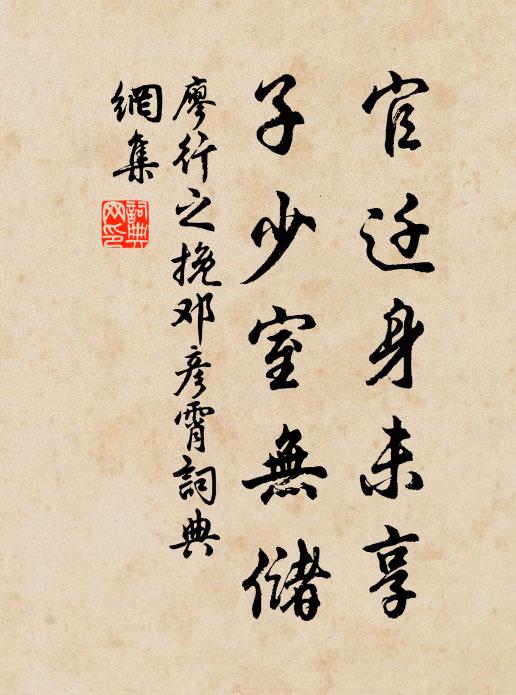 官迁身未享
子少室無儲
廖行之挽邓彦霄詞典
網集
詞典
网印